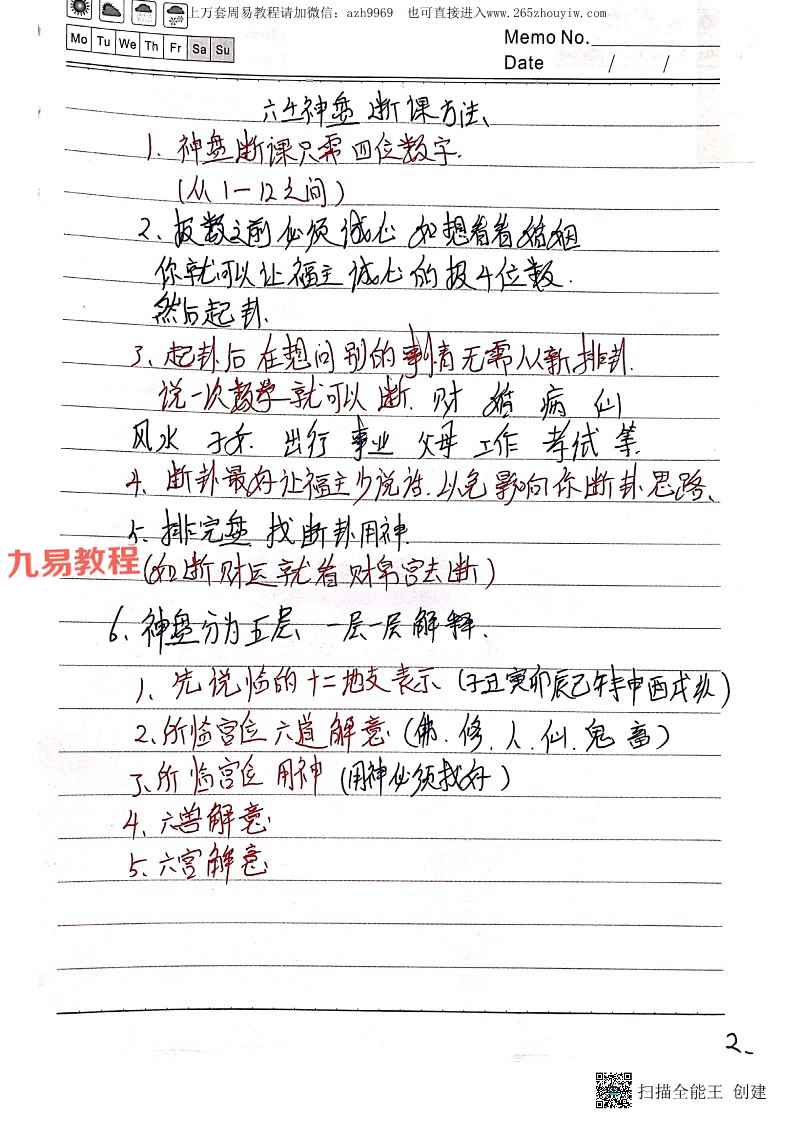 上万套周易教程请加微信：azh9969 也可直接进入www.265zhouyiw.com
Mo Tu We Th Fr Sa Su
Memo No.
Date / /
六壬神盘断课方法、
1. 神盘断课只需四位数字.
(从1—12之间)
2、报数之前必须诚心 如想看看婚姻
你就可以让福主诚心的报4位数.
然后起卦.
3、起卦后在想问别的事情无需从新排卦.
说一次数学就可以断. 财 婚 病 仙
风水 子女. 出行 事业 父母 工作 考试 等.
4、断卦最好让福主少说话. 以免影向你断卦思路、
5. 排完盘 找断卦用神.
九易教程
(如断财运就看财帛宫去断)
6、神盘分为五层、一层一层解释.
1、先说临的十二地支表示 (子丑寅卯辰巳午未申酉戌亥)
2.所临宫位六道解意 (佛.修.人.仙.鬼 畜)
3、所临宫位用神 (用神必须找好)
4、六兽解意
5、六宫解意
2
扫描全能王 创建